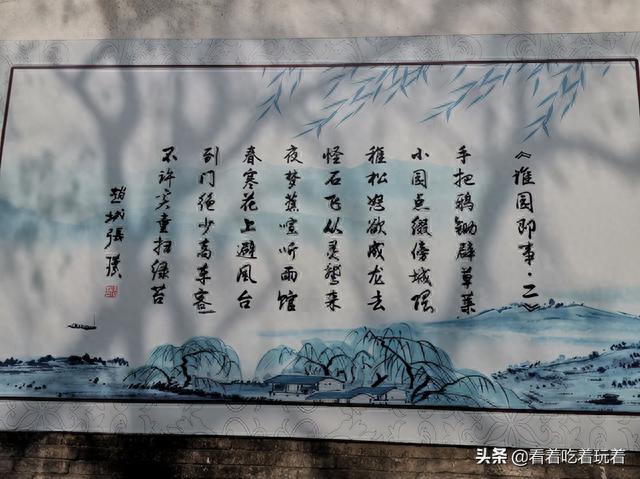 《谁园即事·二》
手把鸦锄辟草莱
小园点缀傍城隈
稚松怒欲成龙去
怪石飞从灵鹫来
夜梦蕉喧听雨馆
春寒花上避风台
到门绝少高车客
不许奚童扫绿苔
赵城張
头条 @看着吃着玩着